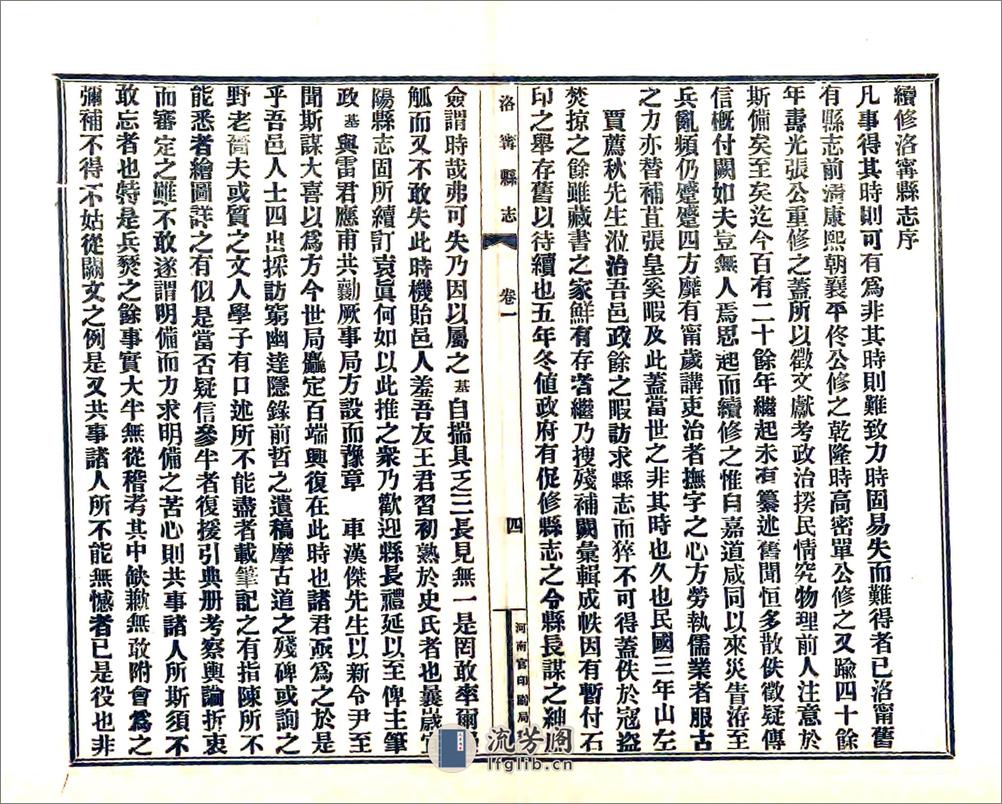 續修洛甯縣志序
凡事得其時則可有爲非其時則難致力時固易失而難得者已洛甯舊
有縣志前清康熙朝襄平佟公修之乾隆時高密單公修之又踰四十餘
年壽光張公重修之蓋所以徵文獻考政治揆民情究物理前人注意於
斯備矣至矣迄今百有二十餘年繼起未有纂述舊聞恒多散佚徵疑傳
信概付闕如夫豈無人焉思起而續修之惟自嘉道咸同以來災眚洊至
兵亂頻仍蹙蹙四方靡有甯歲講吏治者撫字之心方勞執儒業者服古
之力亦替補苴張皇奚暇及此蓋當世之非其時也久也民國三年山左
賈薦秋先生涖治吾邑政餘之暇訪求縣志而猝不可得蓋佚於寇盜
焚掠之餘雖藏書之家鮮有存者繼乃搜殘補闕彙輯成帙因有暫付石
印之舉存舊以待續也五年冬値政府有促修縣志之令縣長謀之紳
洛甯縣志 卷一 四 河南官印刷局
僉謂時哉弗可失乃因以屬之基自揣具乏三長見無一是罔敢率爾
觚而又不敢失此時機貽邑人羞吾友王君習初熟於史氏者也曩歲
陽縣志固所續訂袁眞何如以此推之衆乃歡迎縣長禮延以至俾主筆
政基與雷君應甫共勷厥事局方設而豫章 車漢傑先生以新令尹至
聞斯謀大喜以爲方今世局麤定百端興復在此時也諸君亟爲之於是
乎吾邑人士四出採訪窮幽達隱錄前哲之遺稿摩古道之殘碑或詢之
野老嗇夫或質之文人學子有口述所不能盡者載筆記之有指陳所不
能悉者繪圖詳之有似是當否疑信參半者復援引典册考察輿論折衷
而審定之雖不敢遂謂明備而力求明備之苦心則共事諸人所斯須不
敢忘者也特是兵燹之餘事實大半無從稽考其中缺歉無敢附會爲之
彌補不得不姑從闕文之例是又共事諸人所不能無憾者已是役也非
流芳阁
lfglib.cn